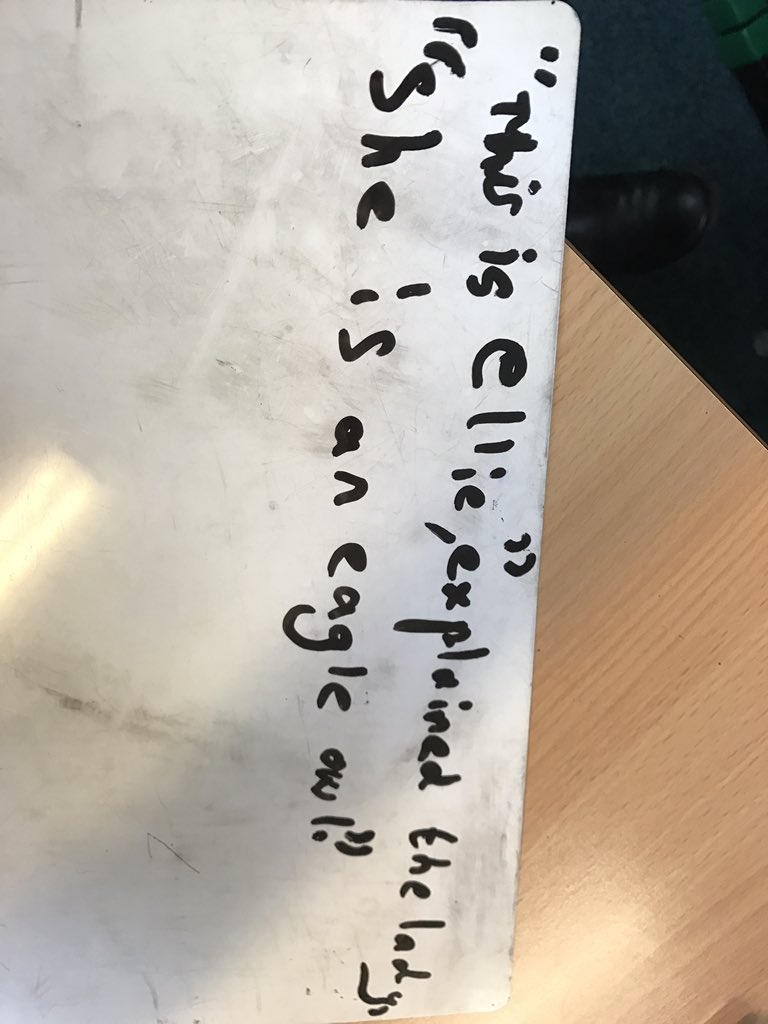 "This is ellie," explained the lady,
"She is an eagle owl."